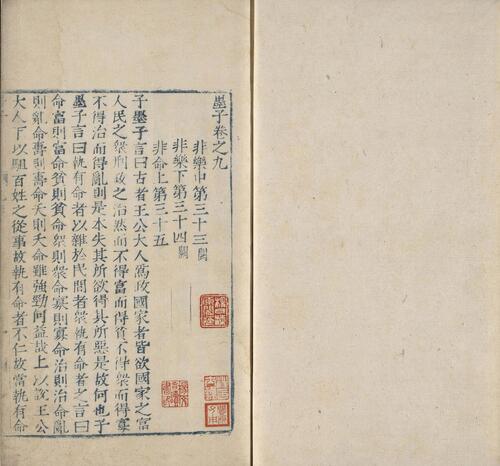 墨子卷之九
非樂中第三十三闕
非樂下第三十四闕
非命上第三十五
子墨子言曰古者王公大人爲政國家者皆欲國家之富
人民之衆刑政之治然而不得富而得貧不得衆而得寡
不得治而得亂則是本失其所欲得其所惡是故何也子
墨子言曰執有命者以雜於民間者衆執有命者之言曰
命富則富命貧則貧命衆則衆命寡則寡命治則治命亂
則亂命壽則壽命夭則夭命雖強勁何益哉上以說王公
大人下以駔百姓之從事故執有命者不仁故當執有命